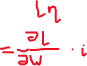 Lη
= ∂L/∂w · i